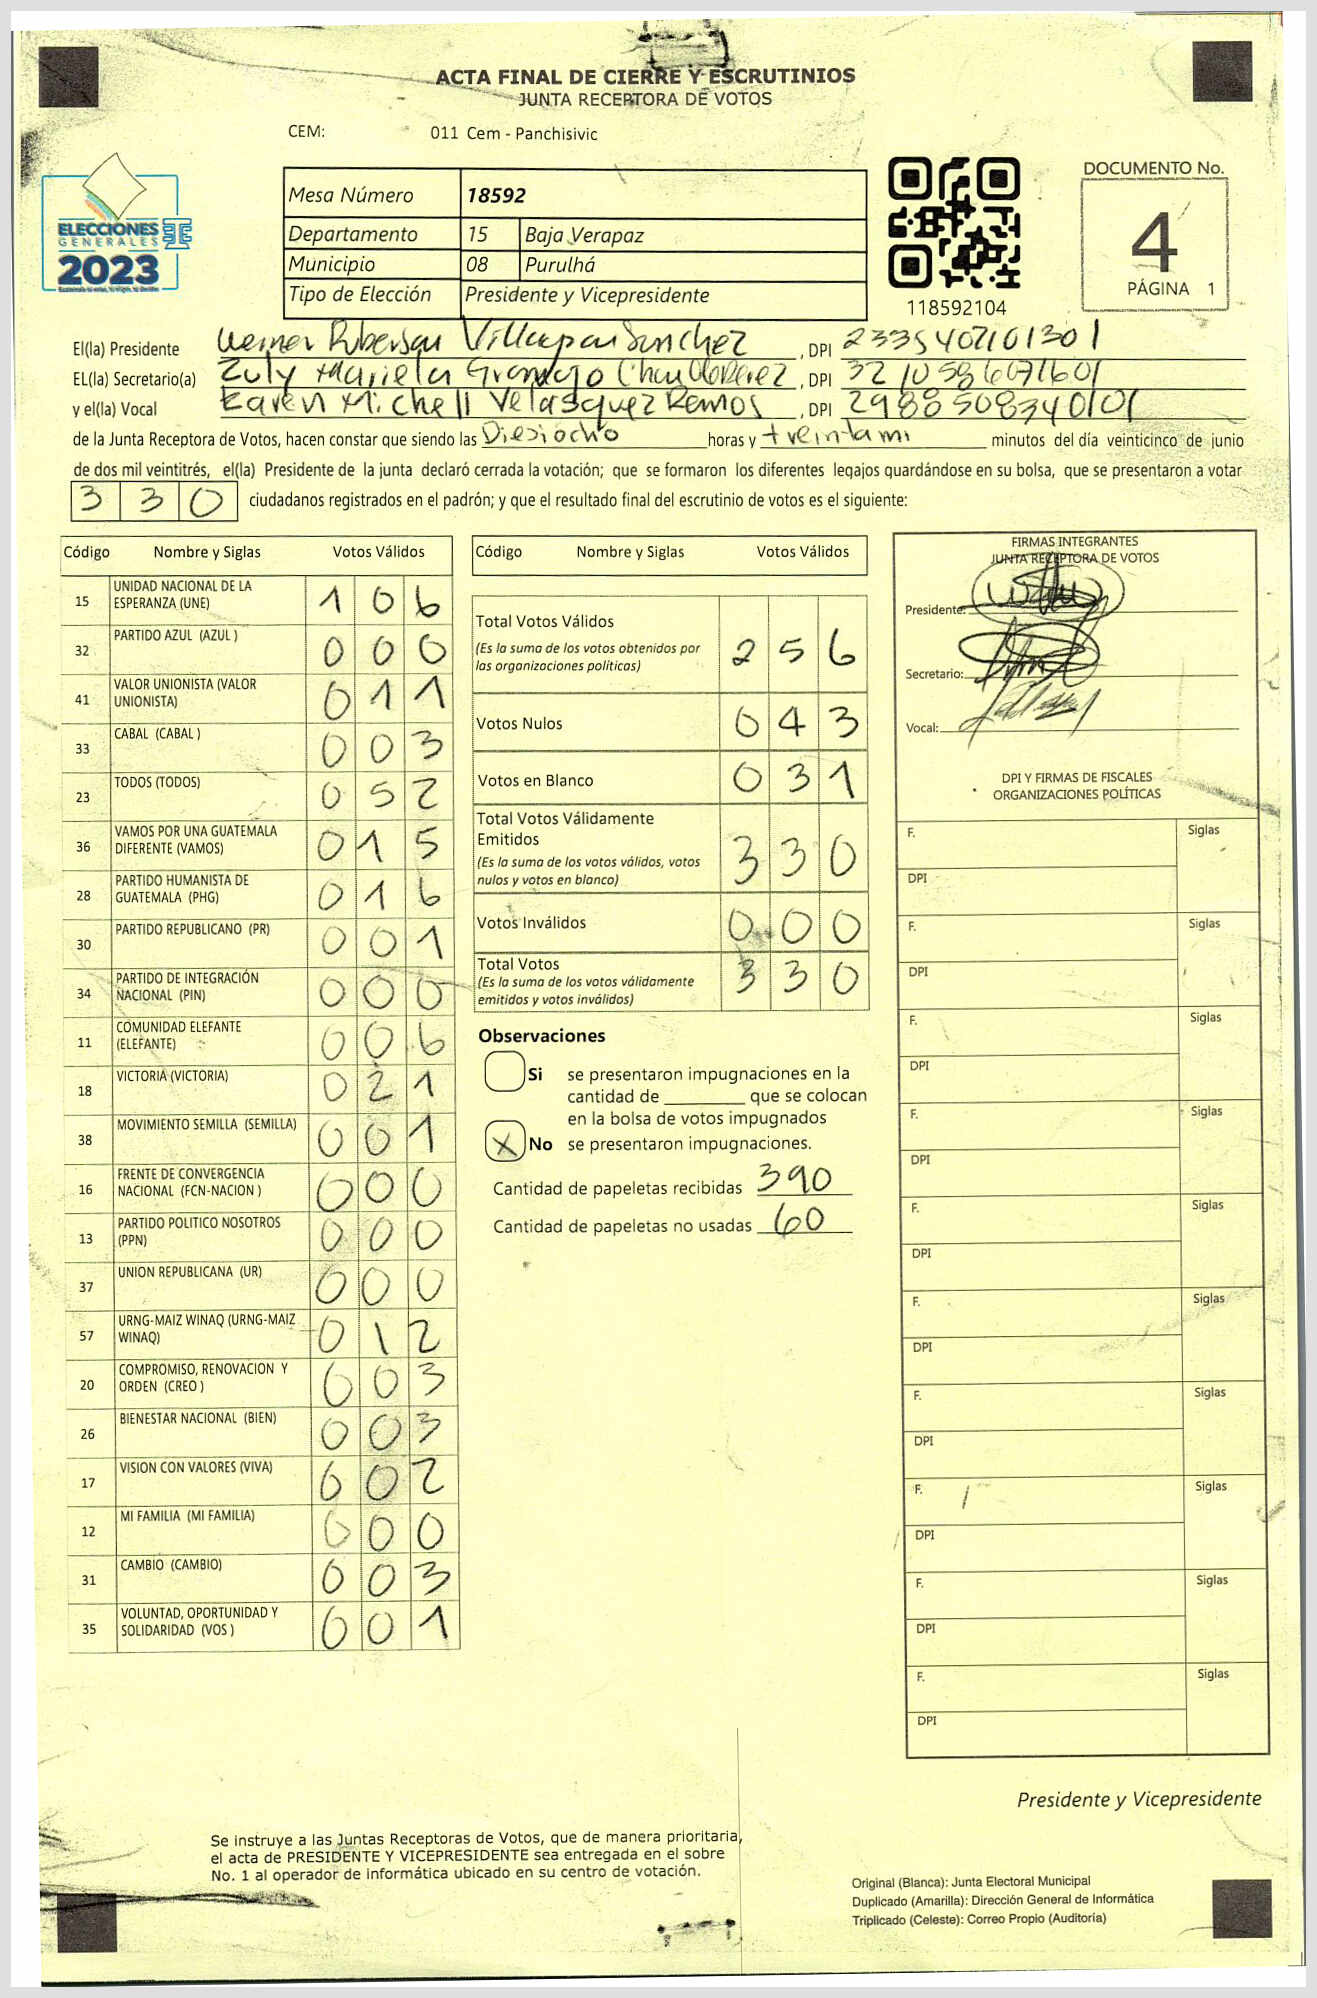 ACTA FINAL DE CIERRE Y ESCRUTINIOS
JUNTA RECEPTORA DE VOTOS
CEM: 011 Cem - Panchisivic
ELECCIONES
GENERALES
2023
Mesa Número 18592
Departamento 15 Baja Verapaz
Municipio 08 Purulhá
Tipo de Elección Presidente y Vicepresidente
118592104
DOCUMENTO No.
4
PÁGINA 1
El(la) Presidente Werner Villagran Sanchez , DPI
EL(la) Secretario(a) Zuly Mariela Gramajo , DPI
y el(la) Vocal Karen Michell Velasquez Ramos , DPI 2988508340101
de la Junta Receptora de Votos, hacen constar que siendo las Diesiocho horas y treintami minutos del día veinticinco de junio
de dos mil veintitrés, el(la) Presidente de la junta declaró cerrada la votación; que se formaron los diferentes legajos guardándose en su bolsa, que se presentaron a votar
330 ciudadanos registrados en el padrón; y que el resultado final del escrutinio de votos es el siguiente:
Código Nombre y Siglas Votos Válidos
15 UNIDAD NACIONAL DE LA ESPERANZA (UNE) 1 0 6
32 PARTIDO AZUL (AZUL ) 0 0 0
41 VALOR UNIONISTA (VALOR UNIONISTA) 0 1 1
33 CABAL (CABAL ) 0 0 3
23 TODOS (TODOS) 0 5 2
36 VAMOS POR UNA GUATEMALA DIFERENTE (VAMOS) 0 1 5
28 PARTIDO HUMANISTA DE GUATEMALA (PHG) 0 1 6
30 PARTIDO REPUBLICANO (PR) 0 0 1
34 PARTIDO DE INTEGRACIÓN NACIONAL (PIN) 0 0 0
11 COMUNIDAD ELEFANTE (ELEFANTE) 0 0 6
18 VICTORIA (VICTORIA) 0 2 1
38 MOVIMIENTO SEMILLA (SEMILLA) 0 0 1
16 FRENTE DE CONVERGENCIA NACIONAL (FCN-NACION ) 0 0 0
13 PARTIDO POLITICO NOSOTROS (PPN) 0 0 0
37 UNION REPUBLICANA (UR) 0 0 0
57 URNG-MAIZ WINAQ (URNG-MAIZ WINAQ) 0 1 2
20 COMPROMISO, RENOVACION Y ORDEN (CREO ) 0 0 3
26 BIENESTAR NACIONAL (BIEN) 0 0 3
17 VISION CON VALORES (VIVA) 0 0 2
12 MI FAMILIA (MI FAMILIA) 0 0 0
31 CAMBIO (CAMBIO) 0 0 3
35 VOLUNTAD, OPORTUNIDAD Y SOLIDARIDAD (VOS ) 0 0 1
Código Nombre y Siglas Votos Válidos
Total Votos Válidos 2 5 6
(Es la suma de los votos obtenidos por
las organizaciones políticas)
Votos Nulos 0 4 3
Votos en Blanco 0 3 1
Total Votos Válidamente
Emitidos 3 3 0
(Es la suma de los votos válidos, votos
nulos y votos en blanco)
Votos Inválidos 0 0 0
Total Votos 3 3 0
(Es la suma de los votos válidamente
emitidos y votos inválidos)
Observaciones
Si se presentaron impugnaciones en la
cantidad de ________ que se colocan
en la bolsa de votos impugnados
X No se presentaron impugnaciones.
Cantidad de papeletas recibidas 390
Cantidad de papeletas no usadas 60
FIRMAS INTEGRANTES
JUNTA RECEPTORA DE VOTOS
Presidente:
Secretario:
Vocal:
DPI Y FIRMAS DE FISCALES
ORGANIZACIONES POLÍTICAS
F. Siglas
DPI
F. Siglas
DPI
F. Siglas
DPI
F. Siglas
DPI
F. Siglas
DPI
F. Siglas
DPI
F. Siglas
DPI
F. Siglas
DPI
F. Siglas
DPI
F. Siglas
DPI
Presidente y Vicepresidente
Se instruye a las Juntas Receptoras de Votos, que de manera prioritaria,
el acta de PRESIDENTE Y VICEPRESIDENTE sea entregada en el sobre
No. 1 al operador de informática ubicado en su centro de votación.
Original (Blanca): Junta Electoral Municipal
Duplicado (Amarilla): Dirección General de Informática
Triplicado (Celeste): Correo Propio (Auditoría)